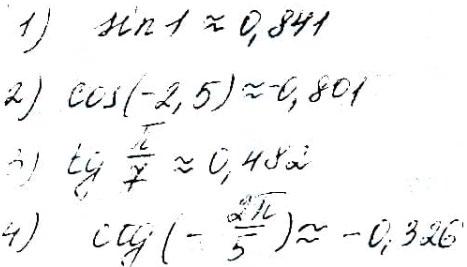 1) sin 1 ≈ 0,841
2) cos(-2,5) ≈ -0,801
3) tg π/7 ≈ 0,482
4) ctg(- 2π/5) ≈ -0,326